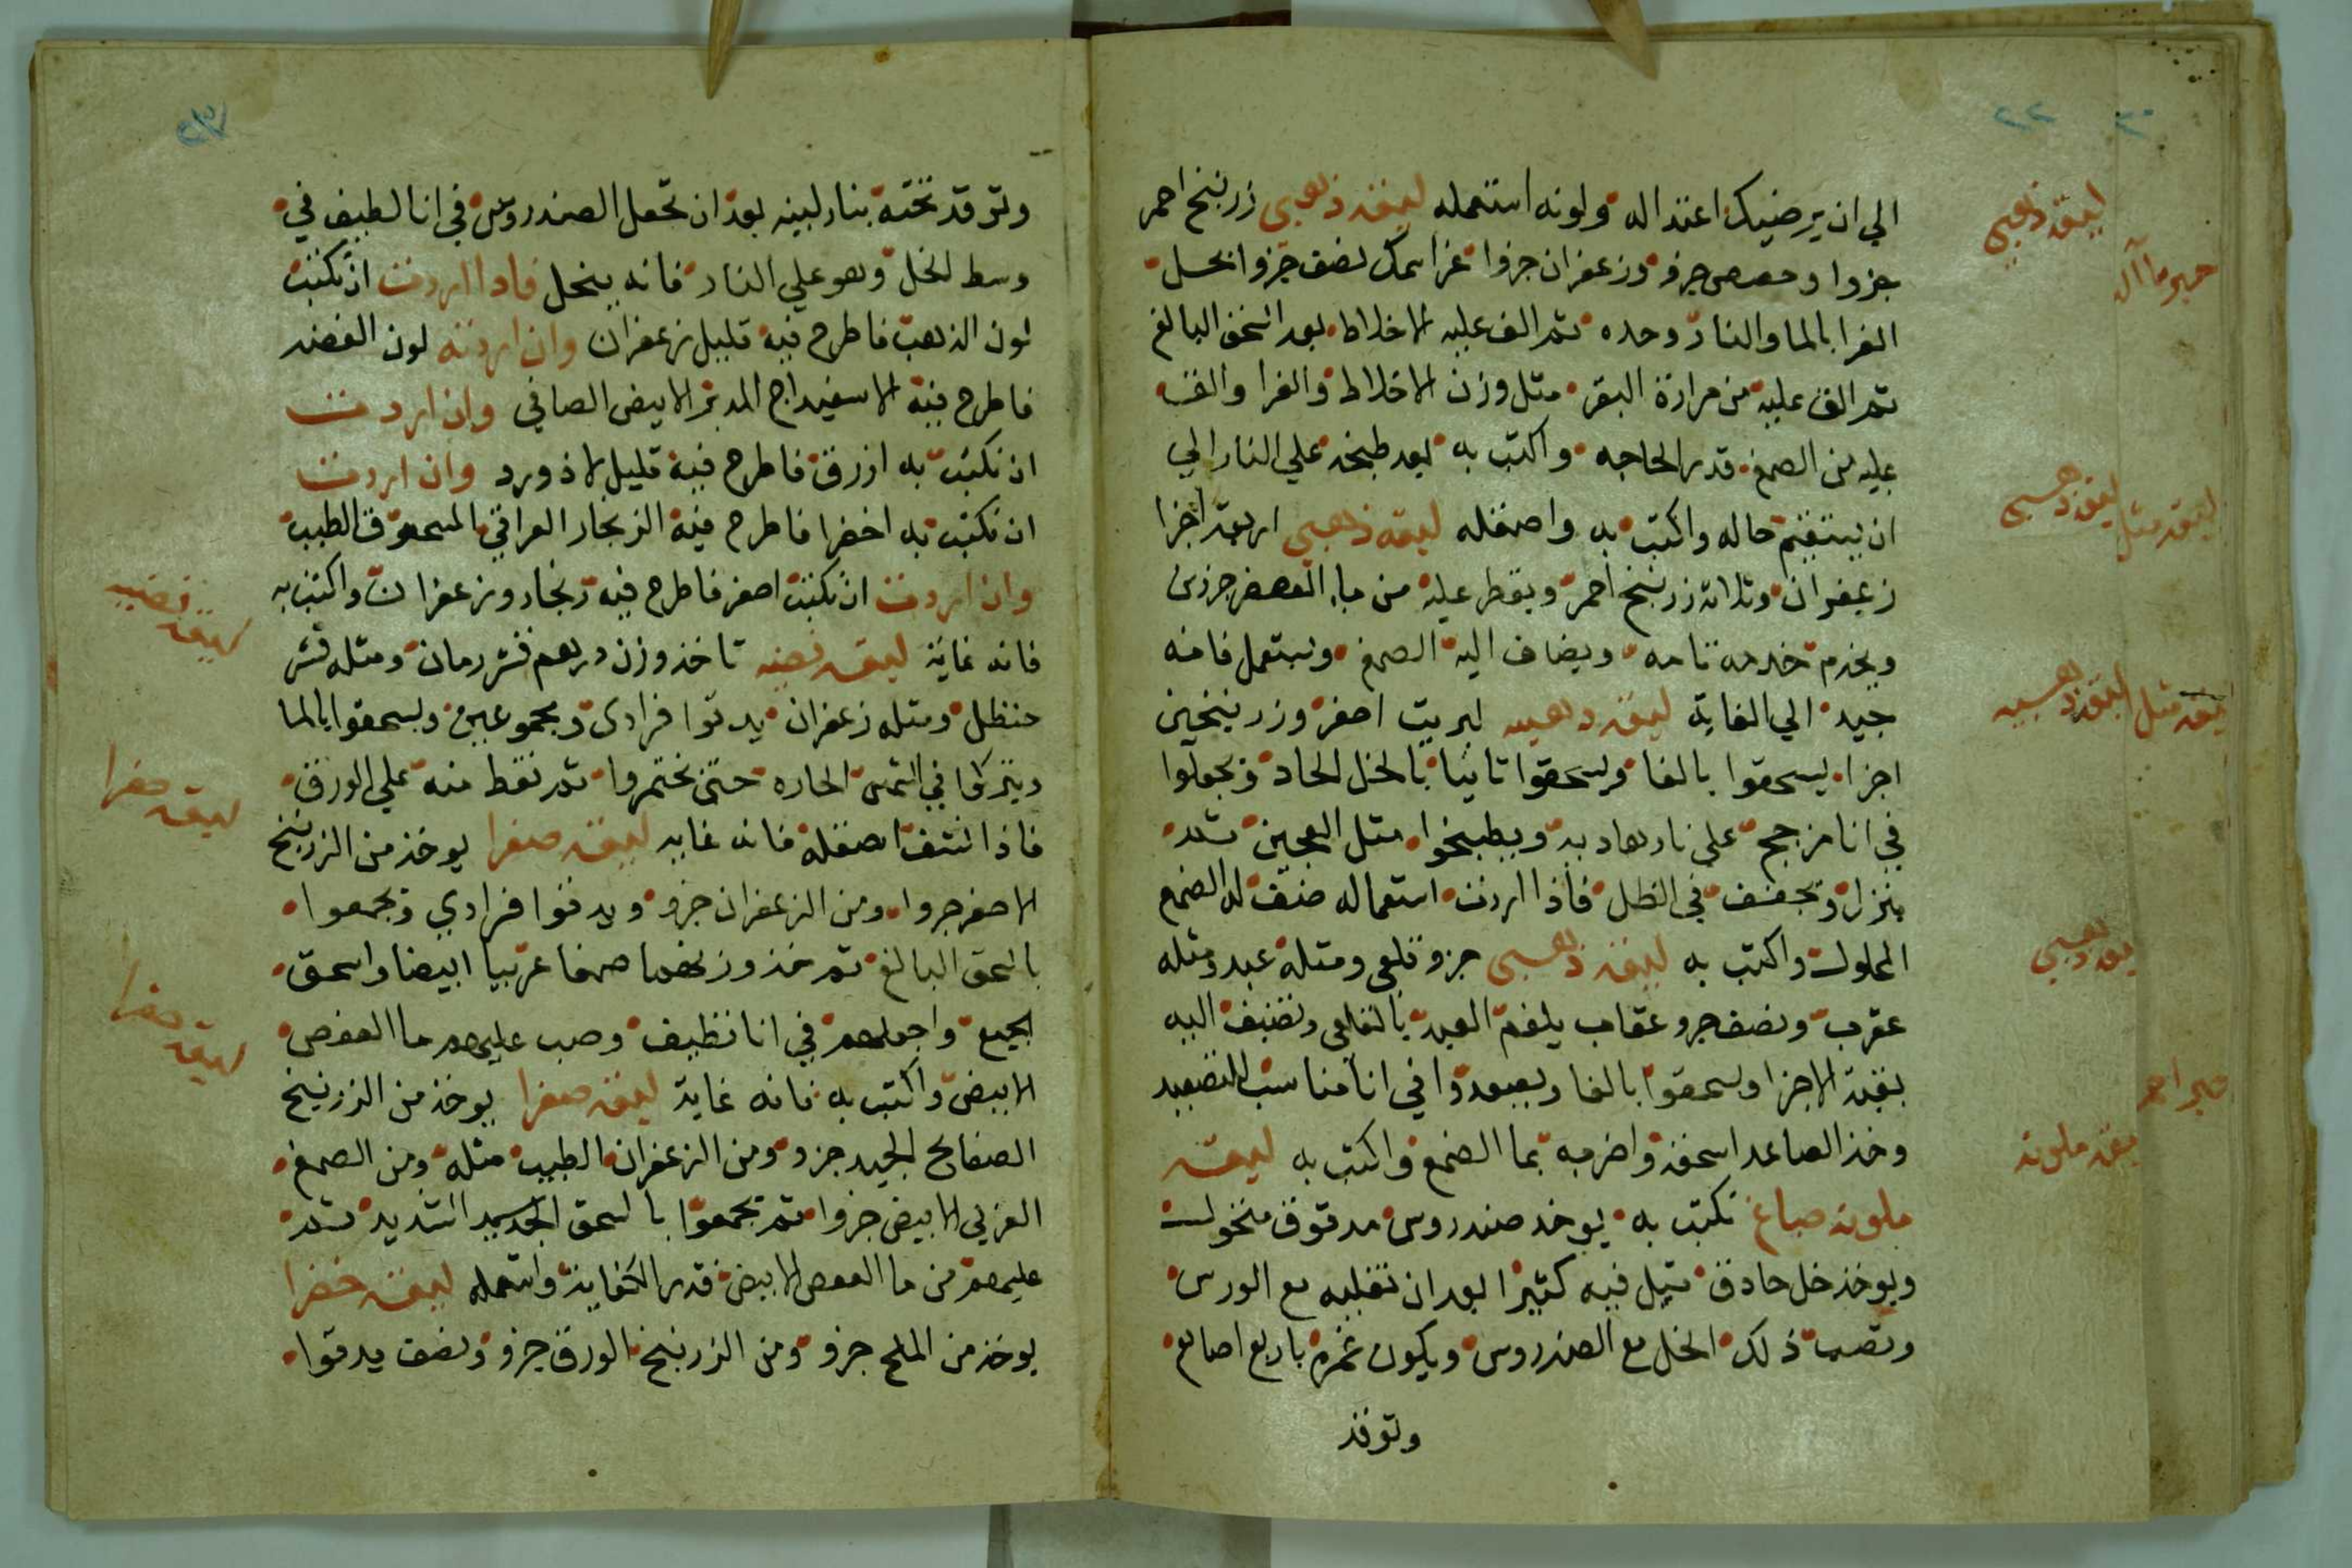 الي ان يرضيك اعتداله ولونه استعمله ليقة ذهبي زرنيخ احمر
جزوا وحصص جزو وزعفران جزوا غرا سمك نصف جزوا يحل
الغرا بالما والنار وحده ثم الق عليه الاخلاط بعد السحق البالغ
ثم الق عليه من مرارة البقر مثل وزن الاخلاط والغرا والق
عليه من الصمغ قدر الحاجه واكتب به بعد طبخه علي النار الي
ان يستقيم حاله واكتب به واصقله ليقه ذهبي اربعة اجزا
زعفران وثلاثة زرنيخ احمر ويقطر عليه من ماء العصفر جزوين
ويخدم خدمه تامه ويضاف اليه الصمغ ويستعمل فانه
جيد الي الغاية ليقة ذهبيه كبريت اصفر وزرنيخين
اجزا يسحقوا بالغا ويسحقوا ثانيا بالخل الحاد ويجعلوا
في انا مزجج علي نار هاديه ويطبخوا مثل العجين ثم
ينزل ويجفف في الظل فاذا اردت استعماله ضيف له الصمغ
المحلول واكتب به ليقة ذهبي جزو قلعي ومثله عبد ومثله
عقرب ونصف جزو عقاب يلغم العبد بالقلعي وتضيف اليه
بقية الاجزا ويسحقوا بالغا ويصعدوا في انا مناسب للتصعيد
وخذ الصاعد اسحقه واضربه بما الصمغ واكتب به ليقة
ملونه صباغ تكتب به يوخد صندروس مدقوق منخول
ويوخذ خل حادق تبل فيه كثيرا بعد ان تغليه مع الورس
وتصب ذلك الخل مع الصندروس ويكون غمره باربع اصابع
وتوقد
ليقة ذهبي
ليقة ذهبي
ليقة مثل
ليقة ذهبيه
ليقة مثل
ليقة ذهبي
حبر احمر
ليقة ملونه
وتوقد تحته بنار لينه بعد ان تجعل الصندروس في انا لطيف في
وسط الخل وهو علي النار فانه ينحل فاذا اردت ان تكتب
لون الذهب فاطرح فيه قليل زعفران وان اردته لون الفضه
فاطرح فيه الاسفيداج المدبر الابيض الصافي وان اردت
ان تكتب به ازرق فاطرح فيه قليل لاذورد وان اردت
ان تكتب به اخضرا فاطرح فيه الزنجار العراقي المسحوق الطيب
وان اردت ان تكتب اصفر فاطرح فيه زنجار وزعفران واكتب به
فانه غاية ليقة فضيه تاخذ وزن درهم قشر رمان ومثله قشر
حنظل ومثله زعفران يدقوا فرادي ومجموعين ويسحقوا بالما
ويتركوا في الشمس الحاره حتي يختمروا ثم نقط منه علي الورق
فاذا نشف اصقله فانه غايه ليقة صفرا يوخذ من الزرنيخ
الاصفر جزوا ومن الزعفران جزو ويدقوا فرادي ويجمعوا
بالسحق البالغ ثم خذ وزنهما صمغا عربيا ابيضا واسحق
الجميع واجعلهم في انا نظيف وصب عليهم ما العفص
الابيض واكتب به فانه غاية ليقة صفرا يوخذ من الزرنيخ
الصفايح الجيد جزو ومن الزعفران الطيب مثله ومن الصمغ
العربي الابيض جزوا ثم يجمعوا بالسحق الجيد الشديد ثم
عليهم من ما العفص الابيض قدر الكفاية واستعمله ليقة خضرا
يوخذ من الملح جزو ومن الزرنيخ الورق جزو ونصف يدقوا
ليقة فضيه
ليقة صفرا
ليقة صفرا